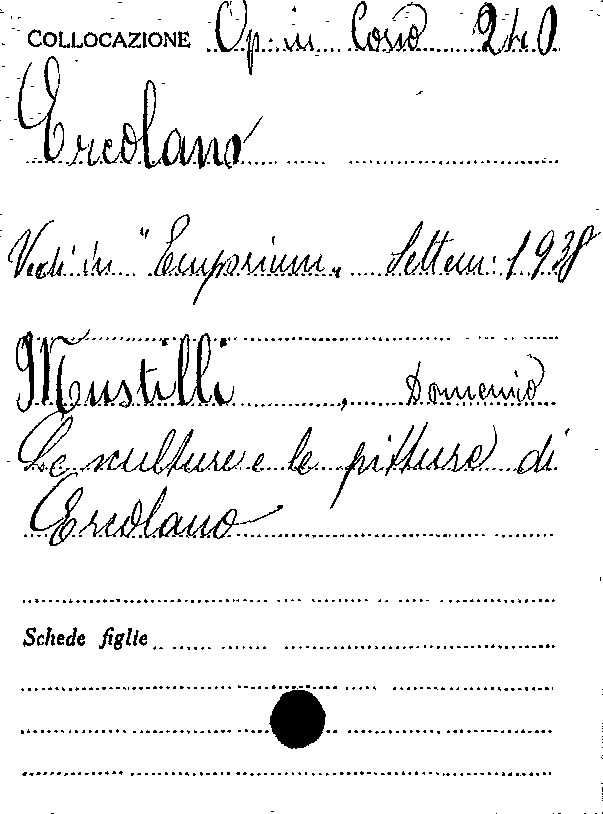 COLLOCAZIONE Op. in Corso 240
Ercolano
Vedi in "Emporium„ Settem: 1938
Mustilli, Domenico
Le sculture e le pitture di
Ercolano
Schede figlie